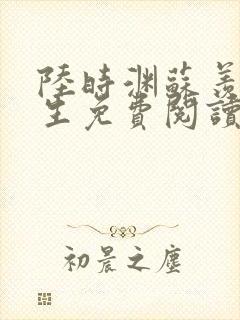 陸時渊蘇羨
生免費閱讀
初晨之塵